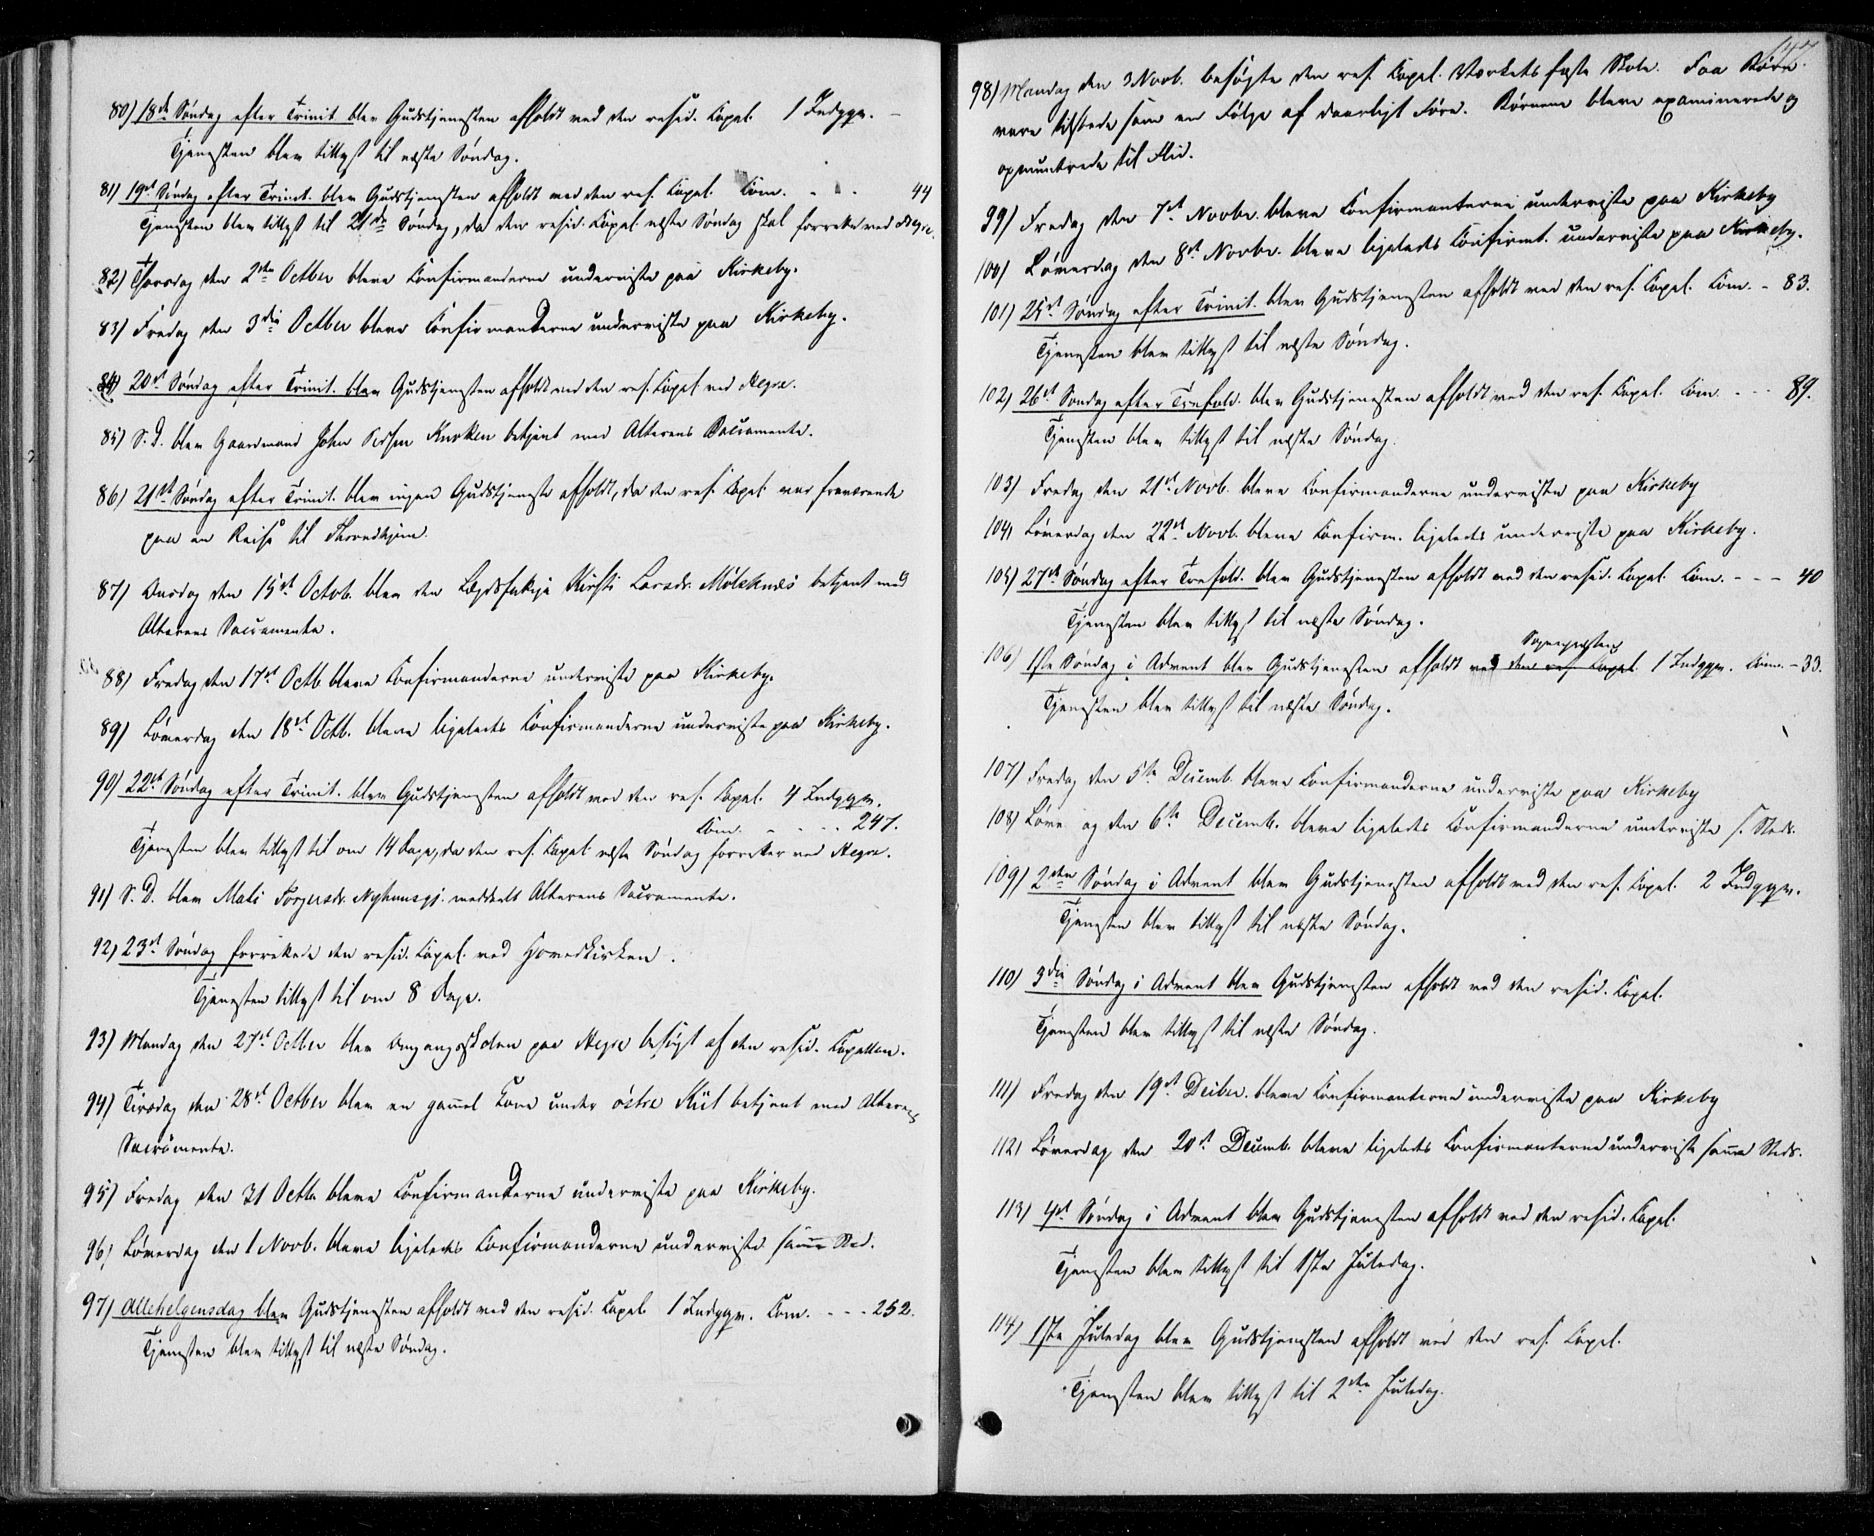 80) 18de Søndag efter Trinit. blev Gudstjenesten afholdt ved den resid. Capel. 1 Indggn.
Tjenesten blev tillyst til næste Søndag.
81) 19de Søndag efter Trinit. blev Gudstjenesten afholdt ved den res. Capel. Com. - - 44
Tjenesten blev tillyst til 21de Søndag, da den resid. Capel. næste Søndag skal forrette ved Hegre.
82) Thorsdag den 2den Octber bleve Confirmanderne underviste paa Kirkeby.
83) Fredag den 3die Octber bleve Confirmanderne underviste paa Kirkeby.
84) 20de Søndag efter Trinit. blev Gudstjenesten afholdt ved den res. Capel. ved Hegre.
85) S. D. blev Gaardmand John betjent med Alterens Sacramente.
86) 21de Søndag efter Trinit. blev ingen Gudstjeneste afholdt, da den res. Capel. var fraværende
paa en Reise til Throndhjem.
87) Onsdag den 15de Octob. blev den Kirsti Larsdr. betjent med
Alterens Sacramente.
88) Fredag den 17de Octb. bleve Confirmanderne underviste paa Kirkeby.
89) Løverdag den 18de Octb. bleve ligeledes Confirmanderne underviste paa Kirkeby.
90) 22de Søndag efter Trinit. blev Gudstjenesten afholdt ved den res. Capel. 4 Indggn.
Com. - - - - 247.
Tjenesten blev tillyst til om 14 Dage, da den res. Capel. næste Søndag forretter ved Hegre.
91) S. D. blev Mali Torgersdr. meddeelt Alterens Sacramente.
92) 23de Søndag forrettede den resid. Capel. ved Hovedkirken.
Tjenesten tillyst til om 8 Dage.
93) Mandag den 27de Octber blev Omgangsskolen paa Hegre besøgt af den resid. Capellan.
94) Tirsdag den 28de Octber blev en gammel Kone under østre Kiil betjent med Alterens
Sacramente.
95) Fredag den 31 Octbr. bleve Confirmanderne underviste paa Kirkeby.
96) Løverdag den 1 Novb. bleve ligeledes Confirmanderne underviste samme Sted.
97) Allehelgensdag blev Gudstjenesten afholdt ved den resid. Capel. 1 Indggn. Com. - - - 252.
Tjenesten blev tillyst til næste Søndag.
147
98) Mandag den 3 Novb. besøgte den res. Capel. Værkets faste Skole. Faa Børn
vare tilstede som en Følge af daarligt Føre. Børnene bleve examinerede og
opmuntrede til Flid.
99) Fredag den 7de Novbr. bleve Confirmanterne underviste paa Kirkeby
100) Løverdag den 8de Novbr. bleve ligeledes Confirmt. underviste paa Kirkeby.
101) 25de Søndag efter Trinit. blev Gudstjenesten afholdt ved den res. Capel. Com. - 83.
Tjenesten blev tillyst til næste Søndag.
102) 26de Søndag efter Trefold. blev Gudstjenesten afholdt ved den res. Capel. Com. - - 89.
Tjenesten blev tillyst til næste Søndag.
103) Fredag den 21de Novb. bleve Confirmanderne underviste paa Kirkeby
104) Løverdag den 22de Novb. bleve Confirm. ligeledes underviste paa Kirkeby.
105) 27de Søndag efter Trefold. blev Gudstjenesten afholdt ved den resid. Capel. Com. - - - 40
Tjenesten blev tillyst til næste Søndag.
Sognepræsten
106) 1ste Søndag i Advent blev Gudstjenesten afholdt ved den res. Capel. 1 Indggn. Com. - 33.
Tjenesten blev tillyst til næste Søndag.
107) Fredag den 5te Decemb. bleve Confirmanderne underviste paa Kirkeby
108) Løverdag den 6te Decemb. bleve ligeledes Confirmanderne underviste s. Steds.
109) 2den Søndag i Advent blev Gudstjenesten afholdt ved den res. Capel. 2 Indggn.
Tjenesten blev tillyst til næste Søndag.
110) 3die Søndag i Advent blev Gudstjenesten afholdt ved den resid. Capel.
Tjenesten blev tillyst til næste Søndag.
111) Fredag den 19de Decbr. bleve Confirmanterne underviste paa Kirkeby
112) Løverdag den 20de Decemb. bleve ligeledes Confirmanterne underviste samme Steds.
113) 4de Søndag i Advent blev Gudstjenesten afholdt ved den resid. Capel.
Tjenesten blev tillyst til 1ste Juledag.
114) 1ste Juledag blev Gudstjenesten afholdt ved den res. Capel.
Tjenesten blev tillyst til 2den Juledag.